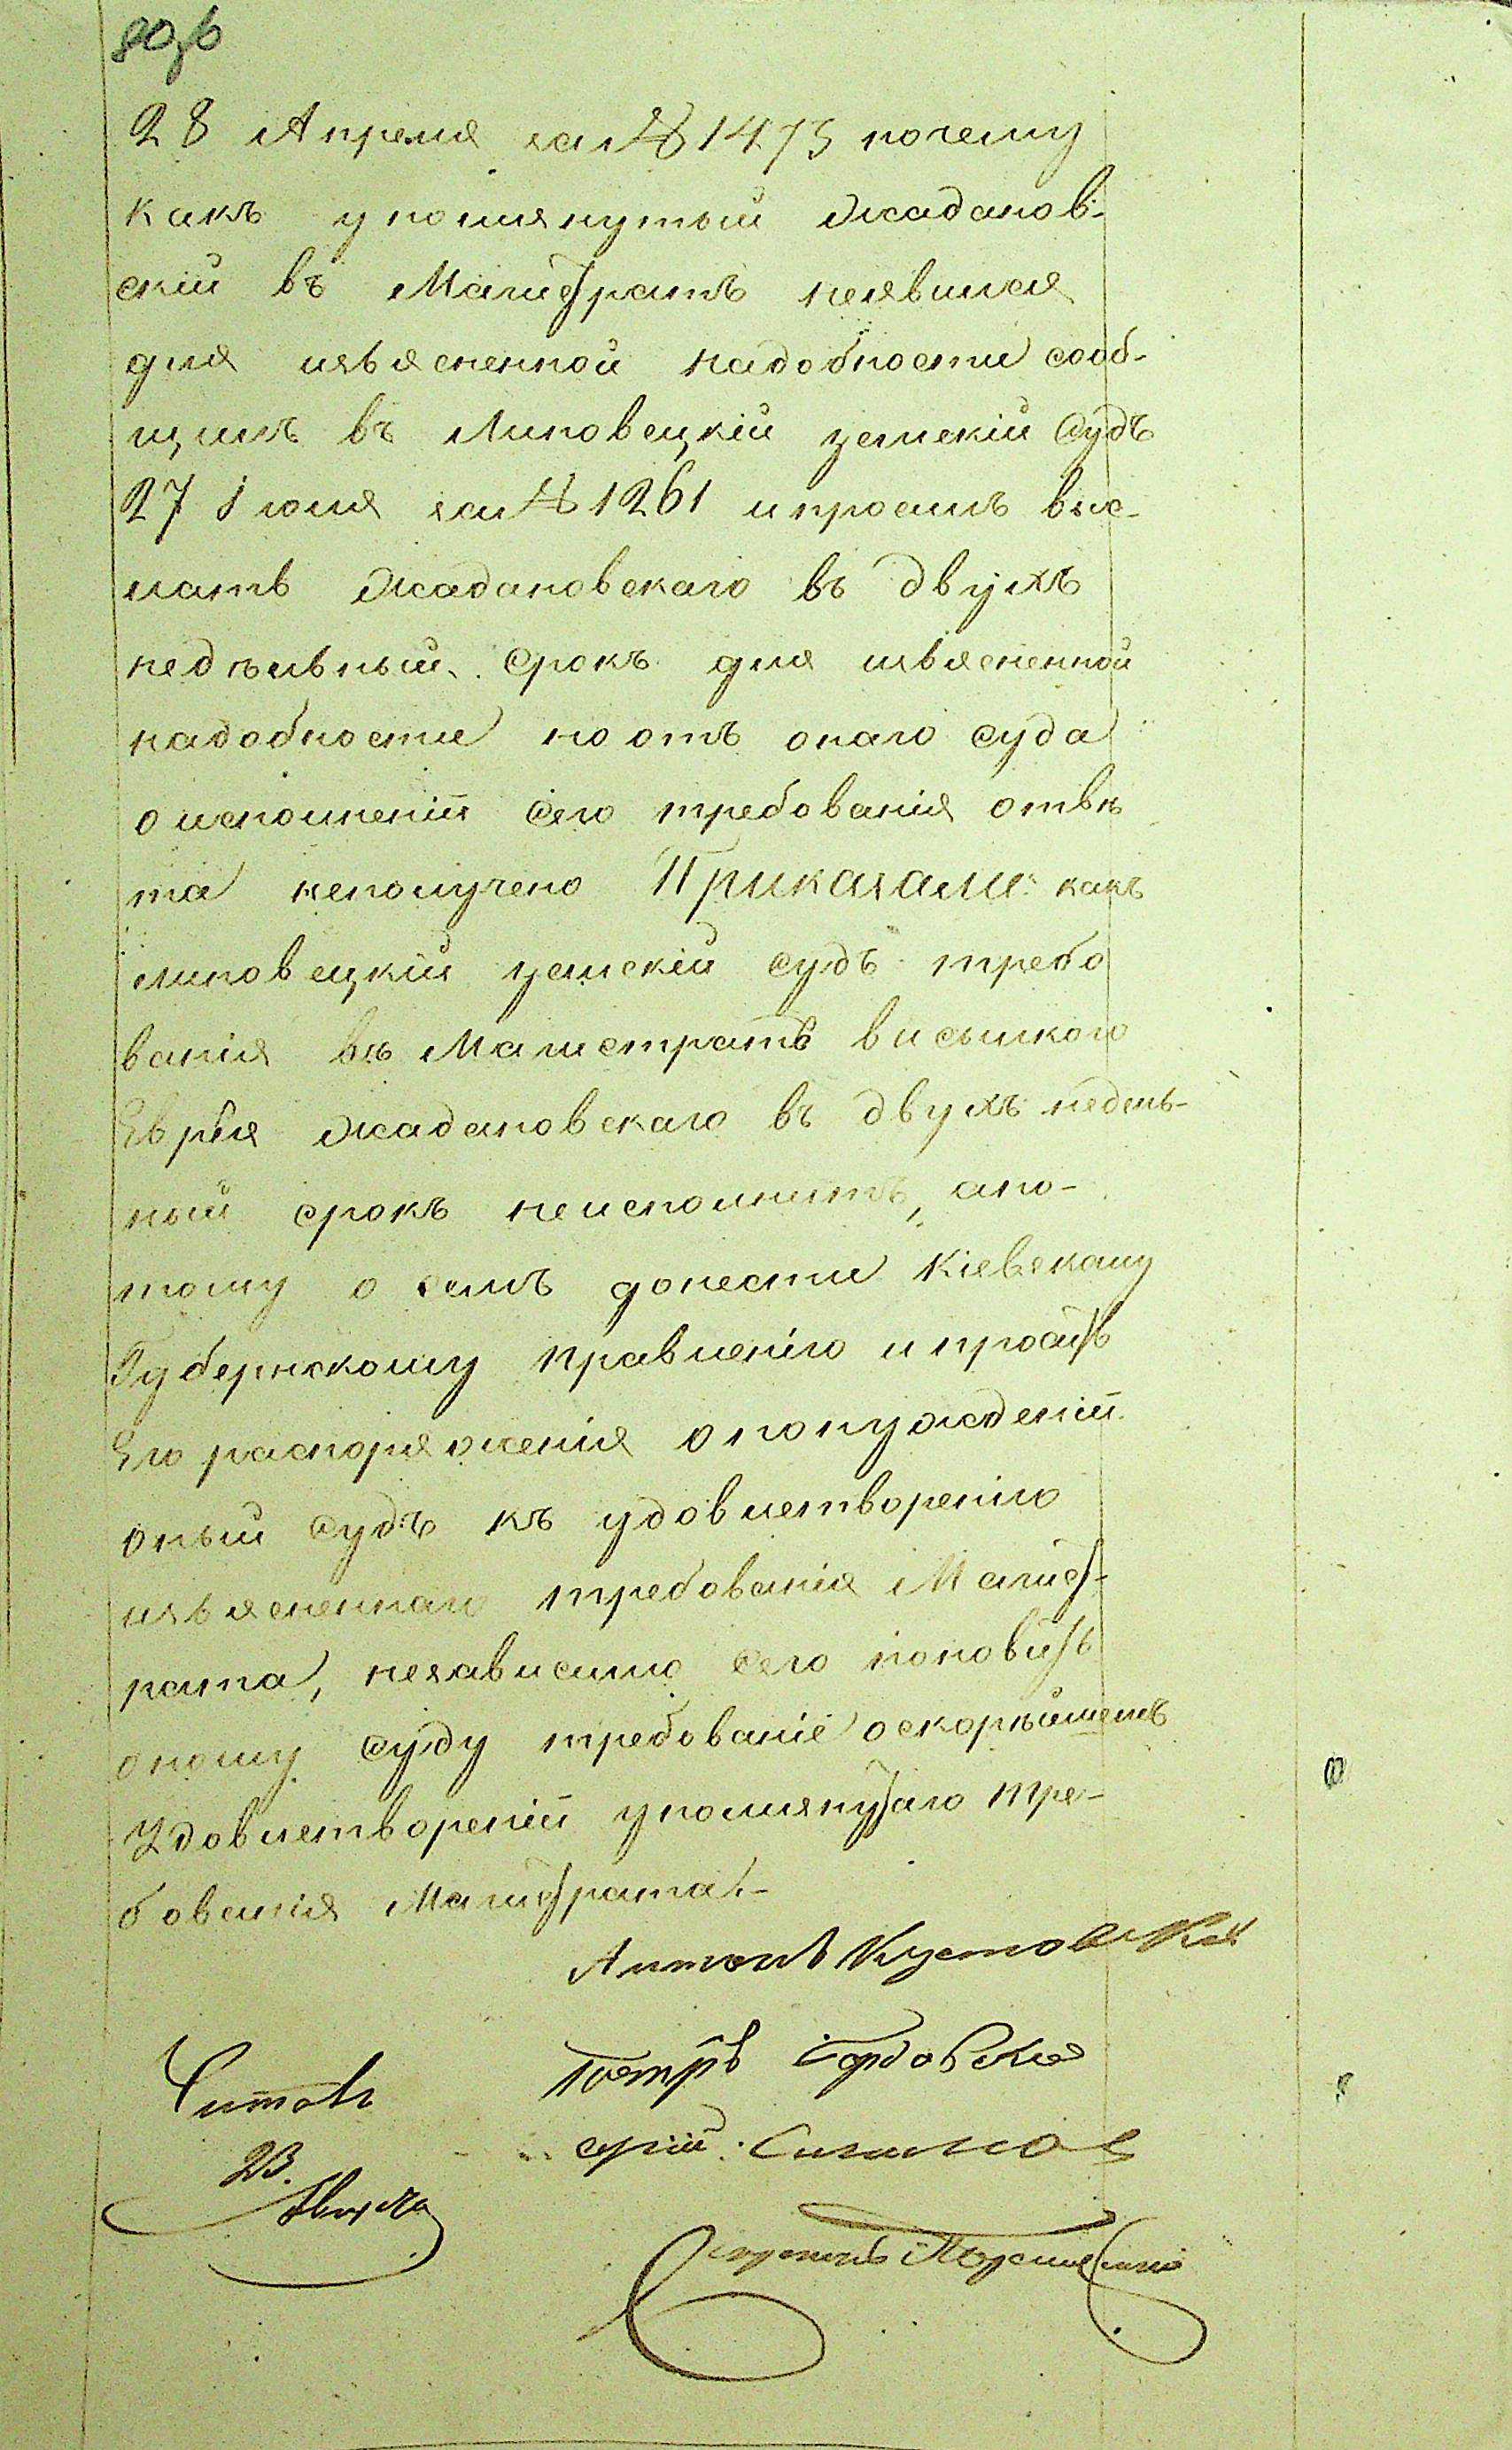 28 Апреля за № 1473 почему
какъ упомянутый Жаданов-
скій въ Магистратъ неявился
для изъясненной надобности сооб-
щилъ въ Липовецкій земскій Судъ
27 Іюля за № 1261 и просилъ выс-
лать Жадановскаго въ двухъ
недѣльный срокъ для изъясненной
надобности но отъ онаго суда
о исполненіи сего требованія отвѣ
та неполучено Приказали: какъ
липовецкій земскій судъ требо
ванія въ Магистратъ висилкою
Еврея Жадановскаго въ двухъ недель-
ный срокъ неисполнитъ, а по-
тому о семъ донести Кіевскому
Губернскому правленію и просить
Его распоряженія о понужденіи
оный судъ къ удовлетворенію
изъясненнаго требованія Магист-
рата, независимо сего поновить
оному суду требованіе о скорѣйшемъ
Удовлетвореніи упомянутаго тре-
бованія Магистрата.-
Антонъ
Петръ
Читалъ